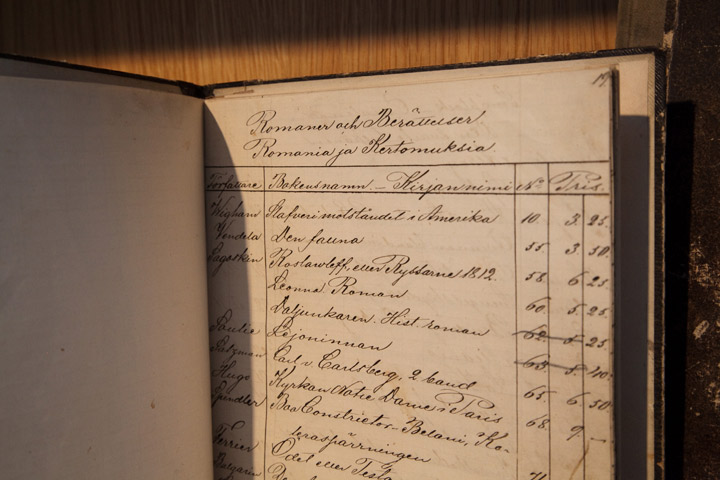 19
Romaner och Berättelser
Romania ja Kertomuksia
Författare Bokens namn – Kirjan nimi No. Pris.
Wigham Slafverimotståndet i Amerika 10. 3. 25.
Vendela Den fauna 55. 3. 50.
Sagoskin Roslawleff, eller Ryssarne 1812. 58. 6. 25.
Leonna. Roman 60. 5. 25.
Daljunkaren. Hist. roman 62. 5. 25.
Lejoninnan 63. 5. 40.
Salzman Carl v. Carlsberg, 2 band 65. 6. 50
Hugo Kyrkan Notre Dame i Paris 68. 9. –
Spindler Boa Constrictor – Betani, Ko-
leraspärrningen
Ferrier Ödet eller Testa
Bulgarin